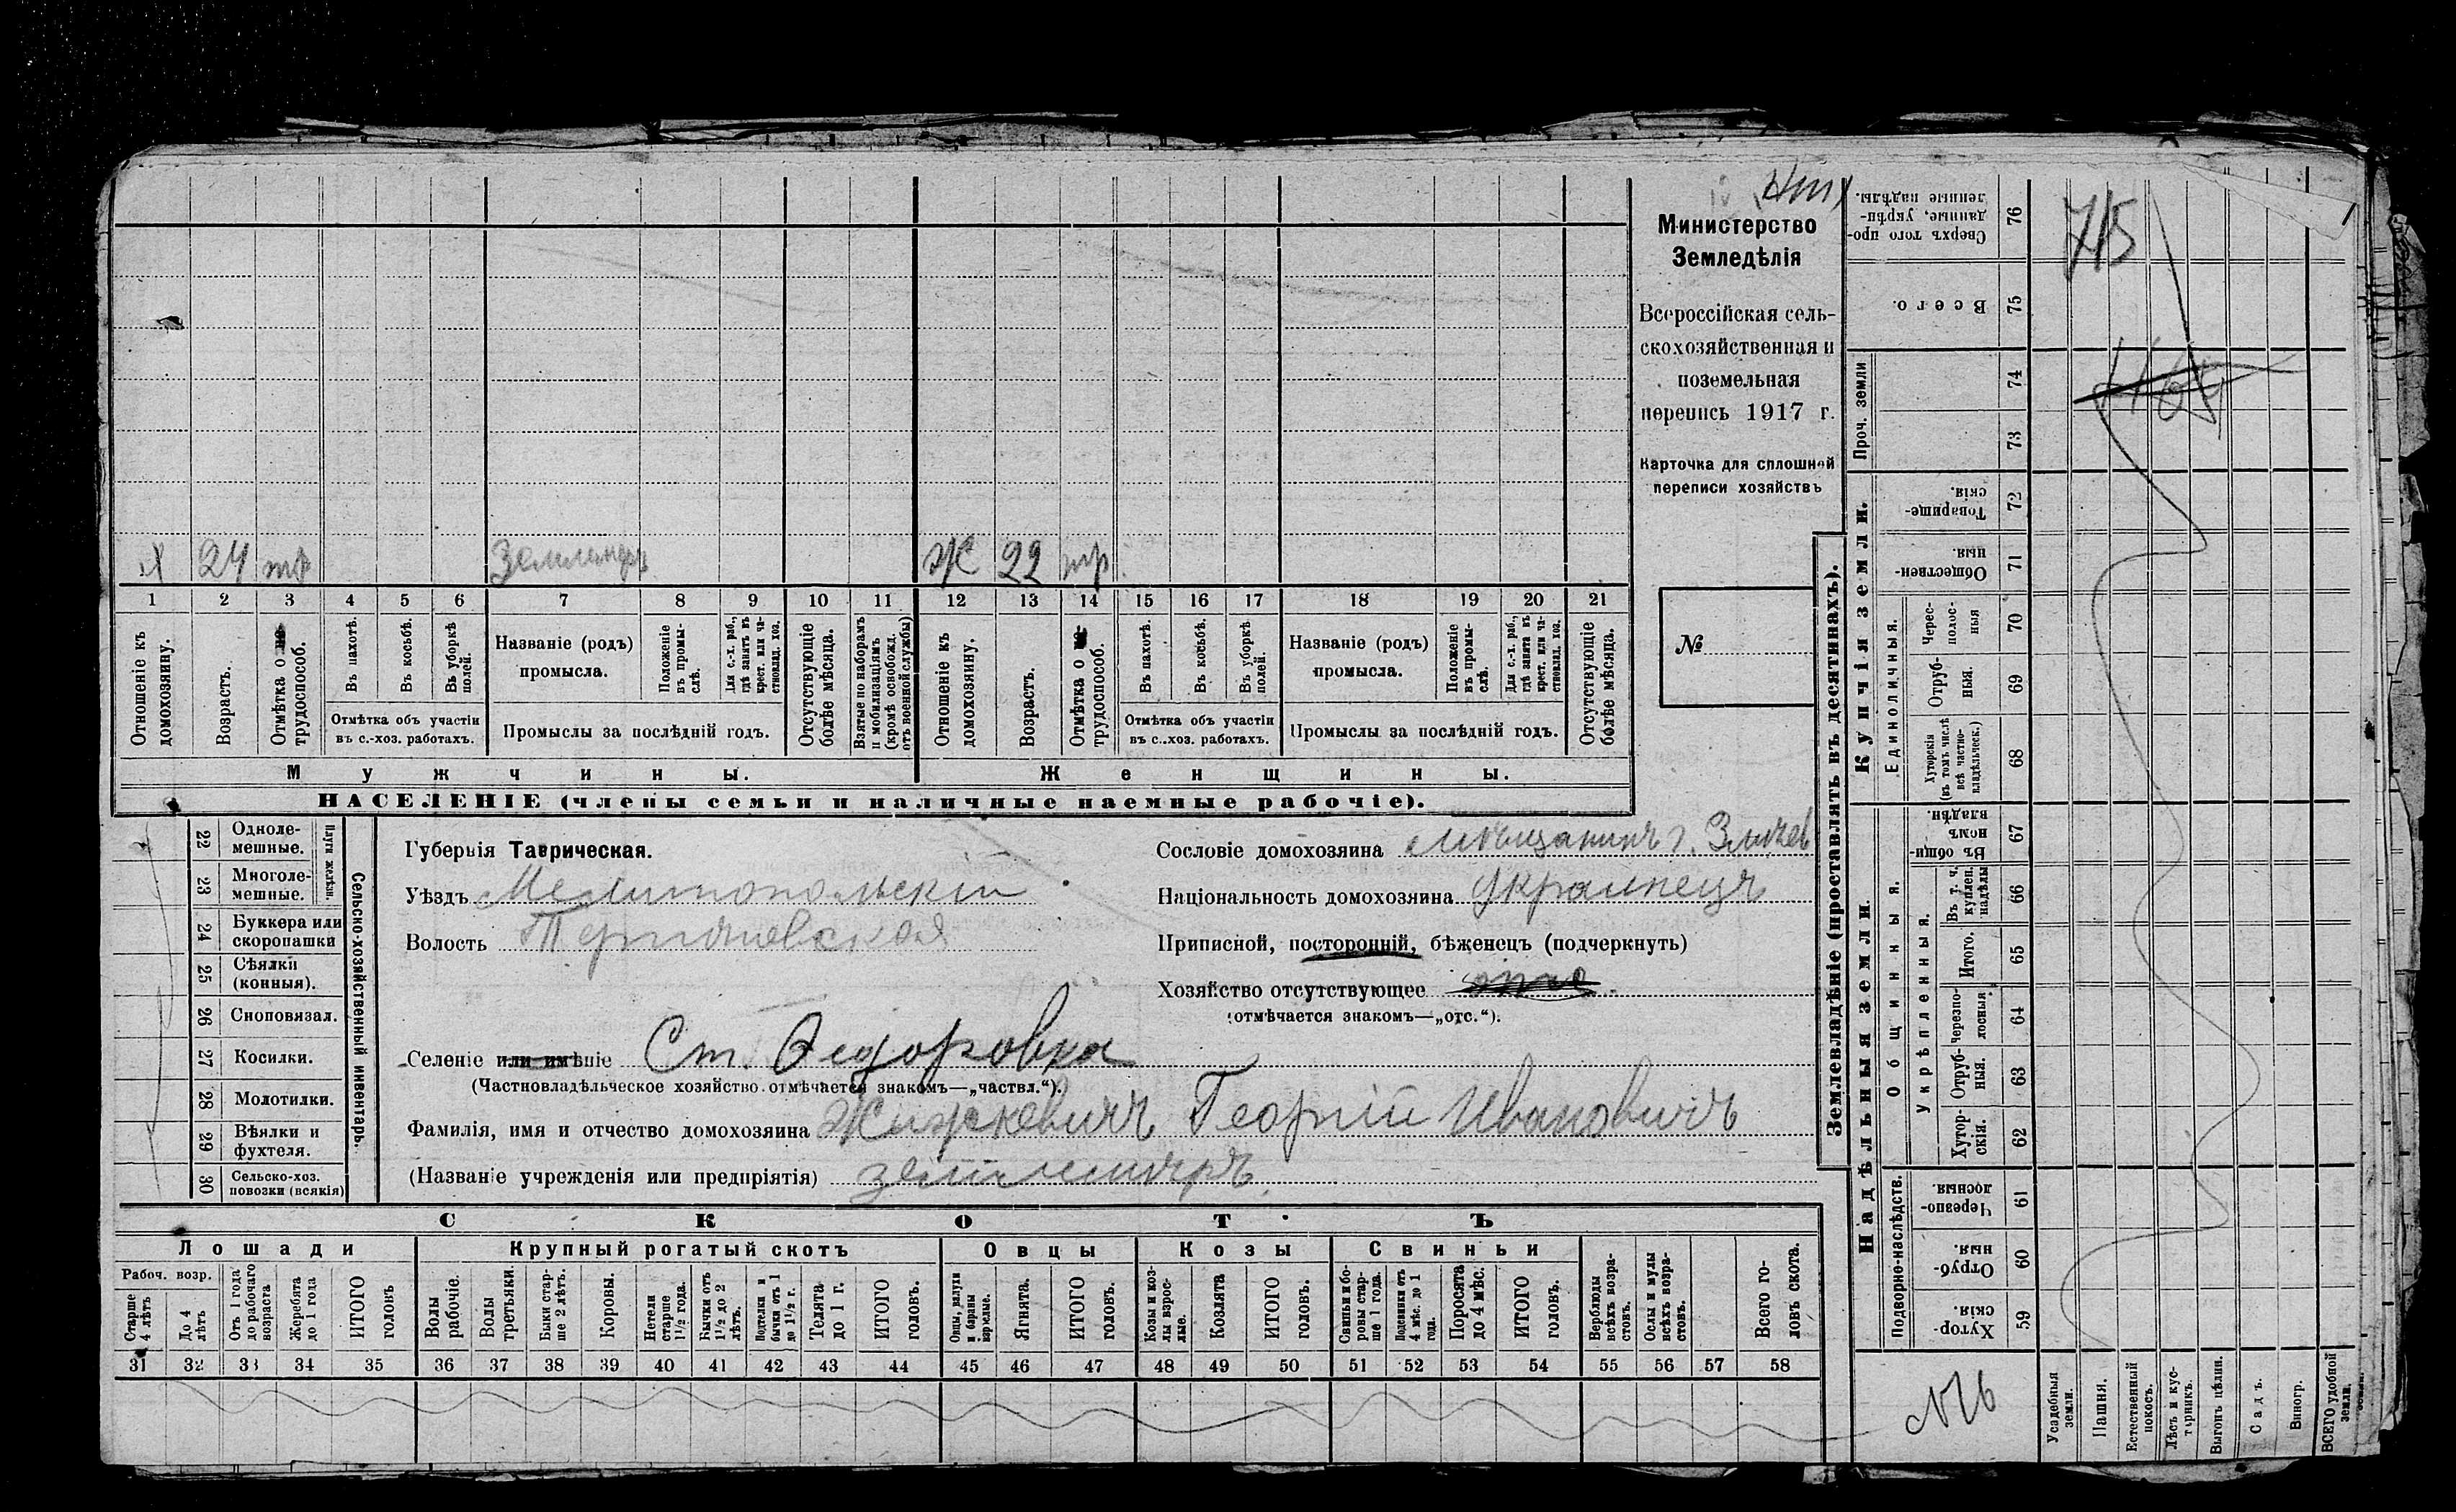 Министерство
Земледѣлія
Всероссійская сель-
скохозяйственная и
поземельная
перепись 1917 г.
Карточка для сплошной
переписи хозяйствъ
№
24 тр Землемеръ Ж 22 тр.
1 2 3 4 5 6 7 8 9 10 11 12 13 14 15 16 17 18 19 20 21
Отношеніе къ домохозяину.
Возрастъ.
Отмѣтка о трудоспособ.
Въ пахотѣ.
Въ косьбѣ.
Въ уборкѣ полей.
Отмѣтка объ участіи
въ с.-хоз. работахъ.
Названіе (родъ)
промысла.
Положеніе въ промы-слѣ.
Для с.-х. раб., гдѣ занятъ въ крест. или ча-стновлад. хоз.
Промыслы за послѣдній годъ.
Отсутствующіе болѣе мѣсяца.
Взятые по наборамъ и мобилизаціямъ (кромѣ освобожд. отъ военной службы)
Отношеніе къ домохозяину.
Возрастъ.
Отмѣтка о трудоспособ.
Въ пахотѣ.
Въ косьбѣ.
Въ уборкѣ полей.
Отмѣтка объ участіи
въ с.-хоз. работахъ.
Названіе (родъ)
промысла.
Положеніе въ промы-слѣ.
Для с.-х. раб., гдѣ занята въ крест. или ча-стновлад. хоз.
Промыслы за послѣдній годъ.
Отсутствующіе болѣе мѣсяца.
Мужчины.
Женщины.
НАСЕЛЕНІЕ (члены семьи и наличные наемные рабочіе).
Сельско-хозяйственный инвентарь.
Плуги желѣзн.
22 Одноле-мешные.
23 Многоле-мешные.
24 Буккера или скоропашки
25 Сѣялки (конныя).
26 Сноповязал.
27 Косилки.
28 Молотилки.
29 Вѣялки и фухтеля.
30 Сельско-хоз. повозки (всякія)
Губернія Таврическая.
Уѣздъ Мелитопольскій
Волость
Сословіе домохозяина мѣщанинъ г.
Національность домохозяина украинецъ
Приписной, посторонній, бѣженецъ (подчеркнуть)
Хозяйство отсутствующее
(отмѣчается знакомъ—„отс.“).
Селеніе или имѣніе Ст. Федоровка
(Частновладѣльческое хозяйство отмѣчается знакомъ—„частвл.“).
Фамилія, имя и отчество домохозяина Георгій Ивановичъ
(Названіе учрежденія или предпріятія) землемѣръ.
СКОТЪ
Лошади
Крупный рогатый скотъ
Овцы
Козы
Свиньи
Рабоч. возр.
Старше 4 лѣтъ
До 4 лѣтъ
Отъ 1 года до рабочаго возраста
Жеребята до 1 года
ИТОГО головъ
Волы рабочіе.
Волы третьяки.
Быки стар-ше 2 лѣтъ.
Коровы.
Нетели старше 1½ года.
Бычки отъ 1½ до 2 лѣтъ.
Подтелки и бычки отъ 1 до 1½ г.
Телята до 1 г.
ИТОГО головъ.
Овцы, валухи и бараны взрослые.
Ягнята.
ИТОГО головъ.
Козы и коз-лы взрос-лые.
Козлята
ИТОГО головъ.
Свиньи и бо-ровы стар-ше 1 года.
Подсвинки отъ 4 мѣс. до 1 года.
Поросята до 4 мѣс.
ИТОГО головъ.
Верблюды всѣхъ возра-стовъ.
Ослы и мулы всѣхъ возра-стовъ.
Всего го-ловъ скота.
31 32 33 34 35 36 37 38 39 40 41 42 43 44 45 46 47 48 49 50 51 52 53 54 55 56 57 58
Землевладѣніе (проставлять въ десятинахъ).
Купчія земли.
Надѣльныя земли
Сверхъ того про-данные, укрѣп-ленные надѣлы. 76
Всего. 75
Проч. земли 74
73
Товарище-скія. 72
Обществен-ныя. 71
Единоличныя.
Черес-полос-ныя 70
Отруб-ныя. 69
Хуторскія (въ томъ числѣ всѣ частно-владѣльческ.) 68
Общинныя.
Въ общин-номъ владѣн. 67
Укрѣпленныя.
Въ т. ч. куплен. надѣлы 66
Итого. 65
Черезпо-лосныя 64
Отруб-ныя. 63
Хутор-скія. 62
Подворно-наслѣдств.
Черезпо-лосныя. 61
Отруб-ныя. 60
Хутор-скія. 59
Усадебныя земли.
Пашня.
Естественный покосъ.
Лѣсъ и кус-тарникъ.
Выгонъ цѣлин.
Садъ.
Виногр.
ВСЕГО удобной земли.
715